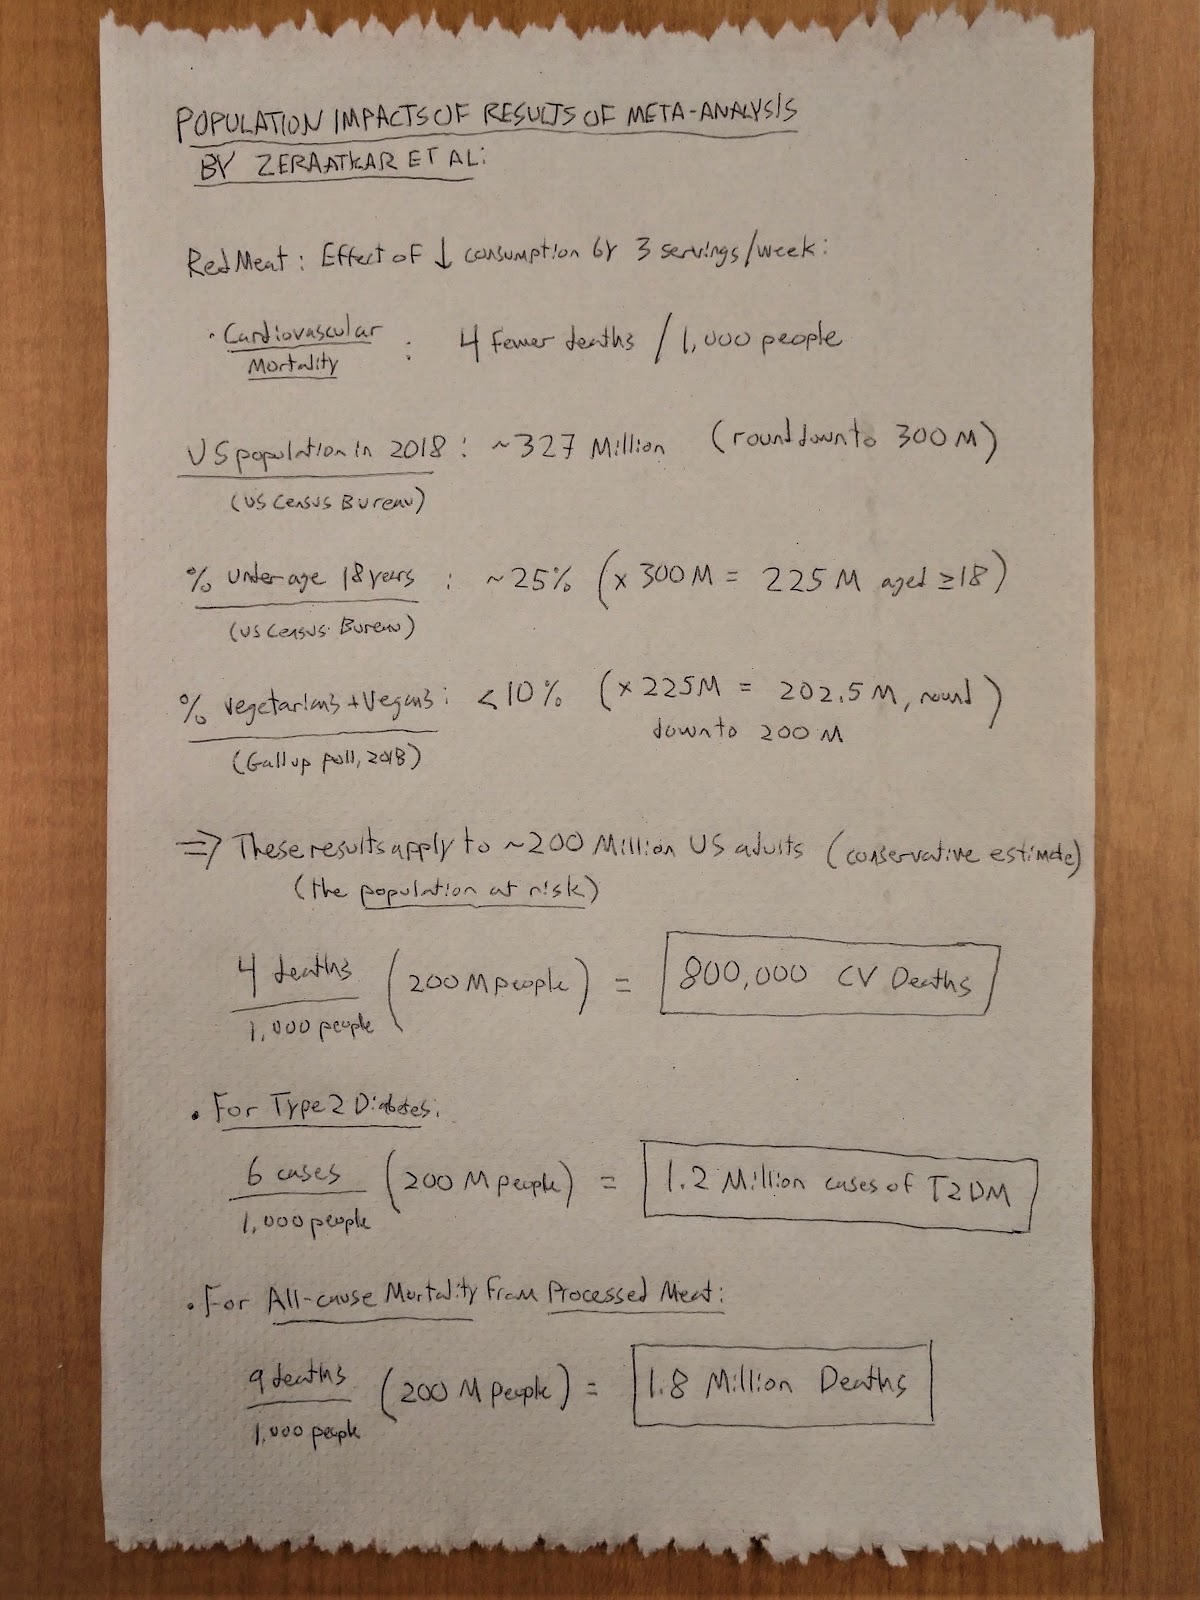 POPULATION IMPACTS OF RESULTS OF META-ANALYSIS
BY ZERAATKAR ET AL:
Red Meat: Effect of ↓ consumption by 3 servings/week:
• Cardiovascular Mortality : 4 fewer deaths / 1,000 people
US population in 2018 : ~327 Million (round down to 300 M)
(US Census Bureau)
% under age 18 years : ~25% (x 300 M = 225 M aged ≥18)
(US Census Bureau)
% vegetarians + vegans: <10% (x 225M = 202.5 M, round
down to 200 M)
(Gallup poll, 2018)
⇒ These results apply to ~200 Million US adults (conservative estimate)
(the population at risk)
4 deaths / 1,000 people (200 M people) = 800,000 CV Deaths
• For Type 2 Diabetes:
6 cases / 1,000 people (200 M people) = 1.2 Million cases of T2DM
• For All-cause Mortality from Processed Meat:
9 deaths / 1,000 people (200 M people) = 1.8 Million Deaths